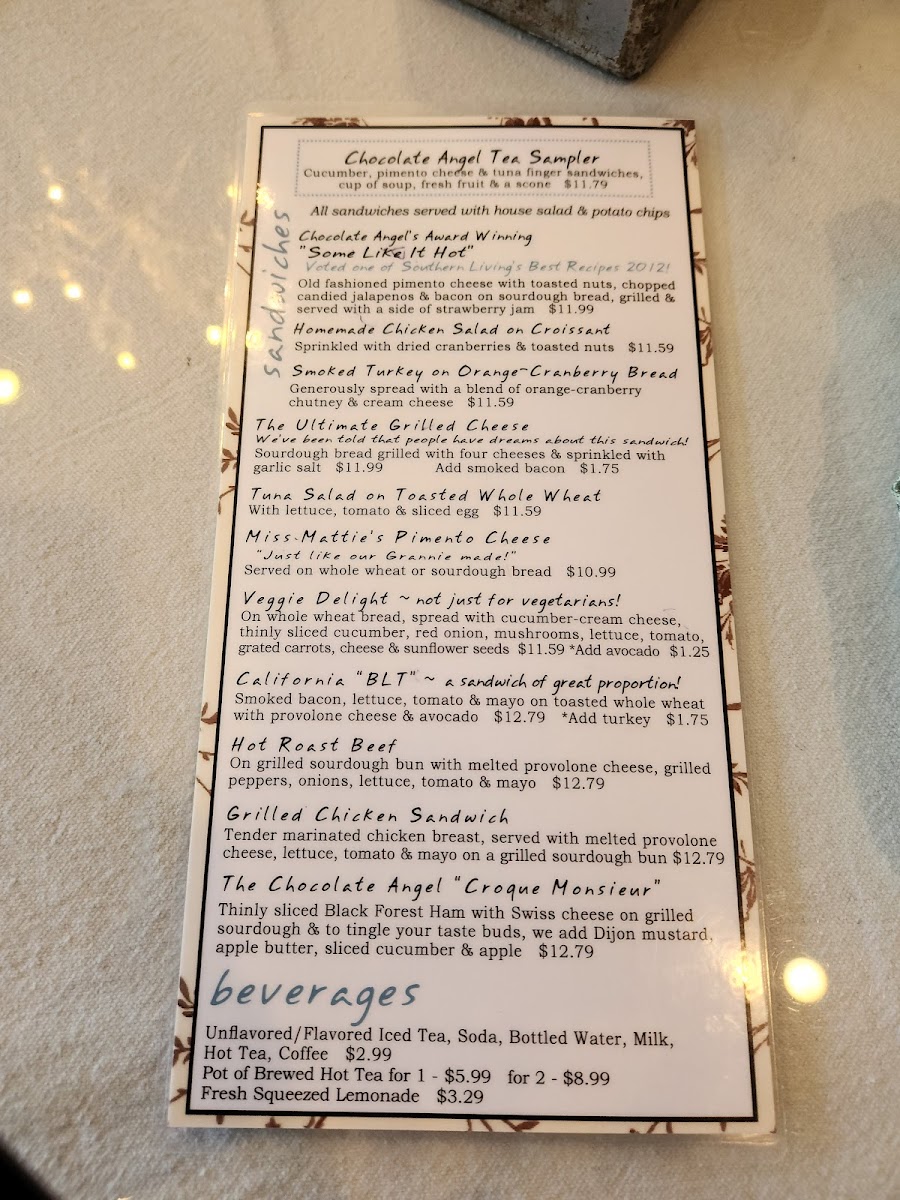 Chocolate Angel Tea Sampler
Cucumber, pimento cheese & tuna finger sandwiches,
cup of soup, fresh fruit & a scone $11.79
All sandwiches served with house salad & potato chips
sandwiches
Chocolate Angel's Award Winning
"Some Like It Hot"
Voted one of Southern Living's Best Recipes 2012!
Old fashioned pimento cheese with toasted nuts, chopped
candied jalapenos & bacon on sourdough bread, grilled &
served with a side of strawberry jam $11.99
Homemade Chicken Salad on Croissant
Sprinkled with dried cranberries & toasted nuts $11.59
Smoked Turkey on Orange~Cranberry Bread
Generously spread with a blend of orange-cranberry
chutney & cream cheese $11.59
The Ultimate Grilled Cheese
We've been told that people have dreams about this sandwich!
Sourdough bread grilled with four cheeses & sprinkled with
garlic salt $11.99 Add smoked bacon $1.75
Tuna Salad on Toasted Whole Wheat
With lettuce, tomato & sliced egg $11.59
Miss Mattie's Pimento Cheese
"Just like our Grannie made!"
Served on whole wheat or sourdough bread $10.99
Veggie Delight ~ not just for vegetarians!
On whole wheat bread, spread with cucumber-cream cheese,
thinly sliced cucumber, red onion, mushrooms, lettuce, tomato,
grated carrots, cheese & sunflower seeds $11.59 *Add avocado $1.25
California "BLT" ~ a sandwich of great proportion!
Smoked bacon, lettuce, tomato & mayo on toasted whole wheat
with provolone cheese & avocado $12.79 *Add turkey $1.75
Hot Roast Beef
On grilled sourdough bun with melted provolone cheese, grilled
peppers, onions, lettuce, tomato & mayo $12.79
Grilled Chicken Sandwich
Tender marinated chicken breast, served with melted provolone
cheese, lettuce, tomato & mayo on a grilled sourdough bun $12.79
The Chocolate Angel "Croque Monsieur"
Thinly sliced Black Forest Ham with Swiss cheese on grilled
sourdough & to tingle your taste buds, we add Dijon mustard,
apple butter, sliced cucumber & apple $12.79
beverages
Unflavored/Flavored Iced Tea, Soda, Bottled Water, Milk,
Hot Tea, Coffee $2.99
Pot of Brewed Hot Tea for 1 - $5.99 for 2 - $8.99
Fresh Squeezed Lemonade $3.29